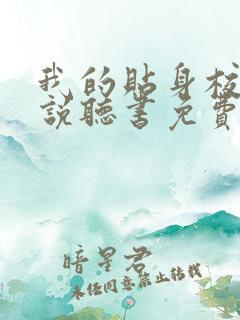 我的貼身校
說聽書免費
暗星君
未经同意禁止转载